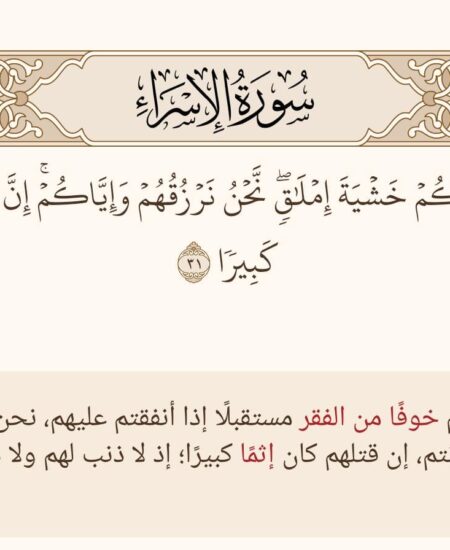 سُورَةُ الإِسْرَاءِ
كُمْ خَشْيَةَ إِمْلَٰقٖۖ نَّحْنُ نَرْزُقُهُمْ وَإِيَّاكُمْۚ إِنَّ
كَبِيرٗا ٣١
خوفًا من الفقر مستقبلًا إذا أنفقتم عليهم، نحن
تم، إن قتلهم كان إثمًا كبيرًا؛ إذ لا ذنب لهم ولا